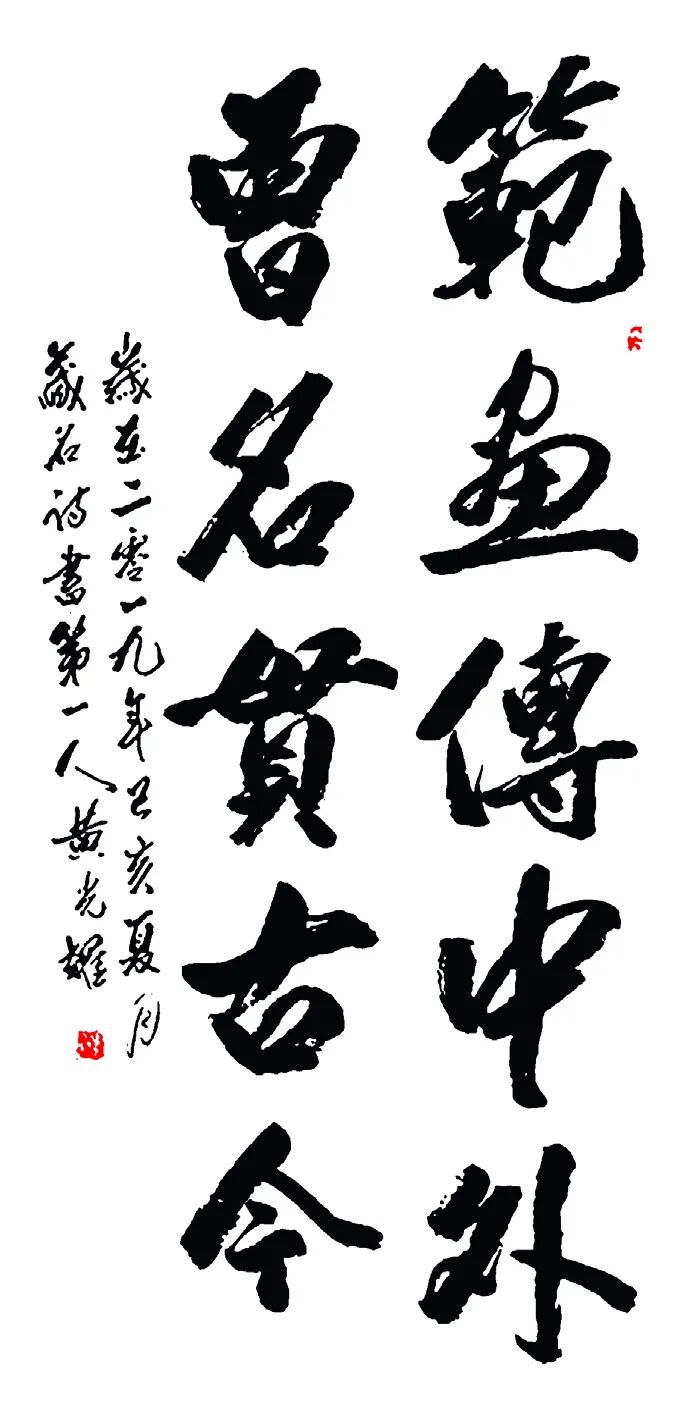 範畫傳中外
曾名贯古今
歲在二零一九年己亥夏月
藏名诗書第一人黄光耀